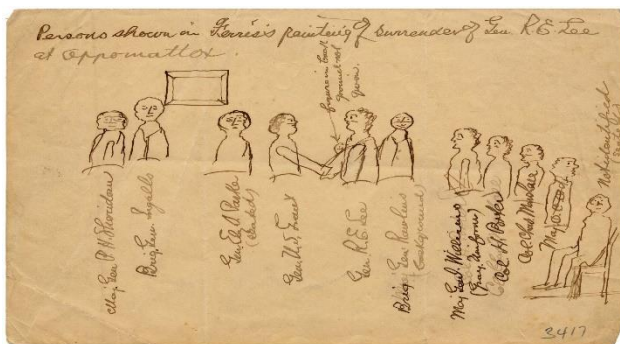 Persons shown in Ferris's painting of Surrender of Gen. R. E. Lee
at Appomattox.
figure in back
ground not
given.
Maj. Gen. P. H. Sheridan
Brig. Gen. Ingalls
Gen. E. A. Parker
(seated)
Gen. U. S. Grant
Gen. R. E. Lee
Brig. Gen. Rawlins
(background)
Maj. Gen. S. Williams
(Gray Uniform)
Col. H. Porter
Col. Chas Marshall
Not identified
seated
3417